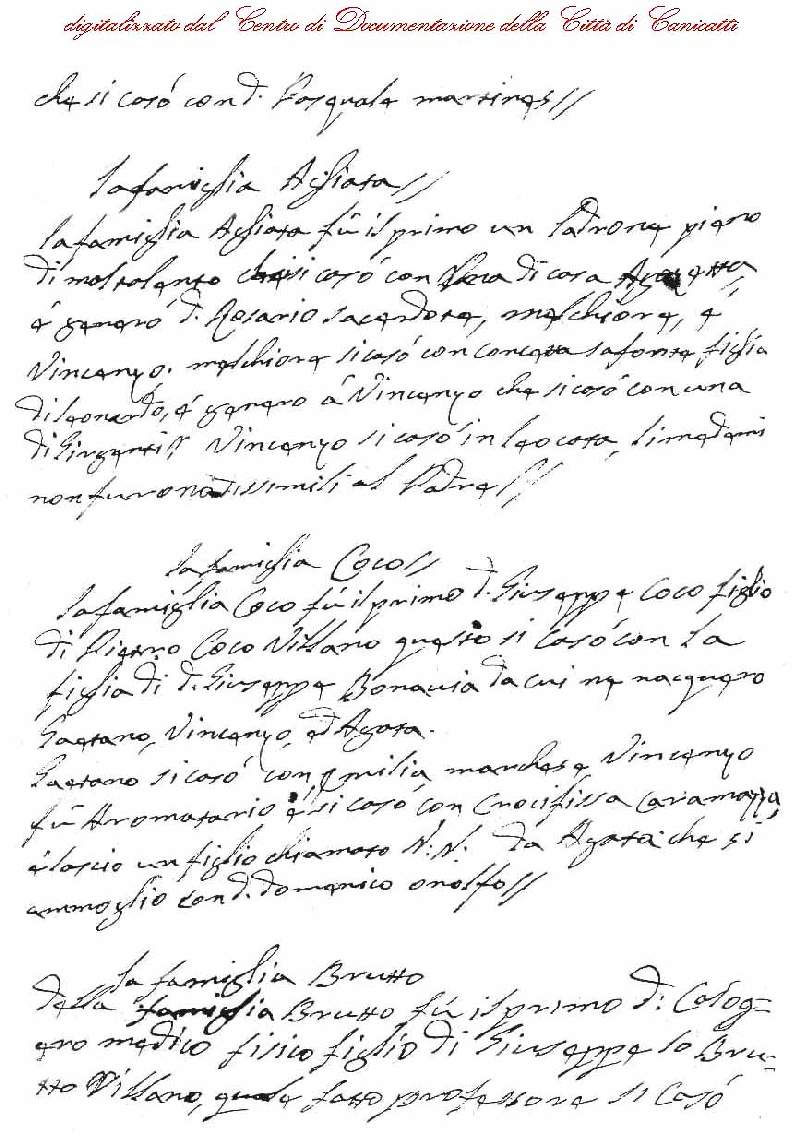 digitalizzato dal Centro di Documentazione della Città di Canicattì
che si casó con d. Pasquale martines//
la famiglia Agliata//
la famiglia Agliata fù il primo un ladrone pieno
di mal talento che si casó con di casa
é generó d. Rosario sacerdote, melchiore, é
Vincenzo. melchiore si casó con Concetta safonte figlia
di leonardo, é generó á Vincenzo che si casó con una
di Girgenti// Vincenzo si casó in leocata, li medemi
non furono dissimili al Padre//
la famiglia Coco//
la famiglia Coco fú il primo d. Giuseppe Coco figlio
di Pietro Coco Villano questo si casó con la
figlia di d. Giuseppe Bonavia da cui ne nacquero
Gaetano, Vincenzo, ed Agata.
Gaetano si casó con Emilia marchese Vincenzo
fú Aromatario é si casó con Crocifissa Caramazza,
é lascio un figlio chiamato N.N. da Agata che si
ammoglio con d. domenico onolfo//
la famiglia Brutto
della famiglia Brutto fú il primo d: Calog=
ero medico fisico figlio di Giuseppe lo Bru=
tto Villano, quale fatto professore si Casó